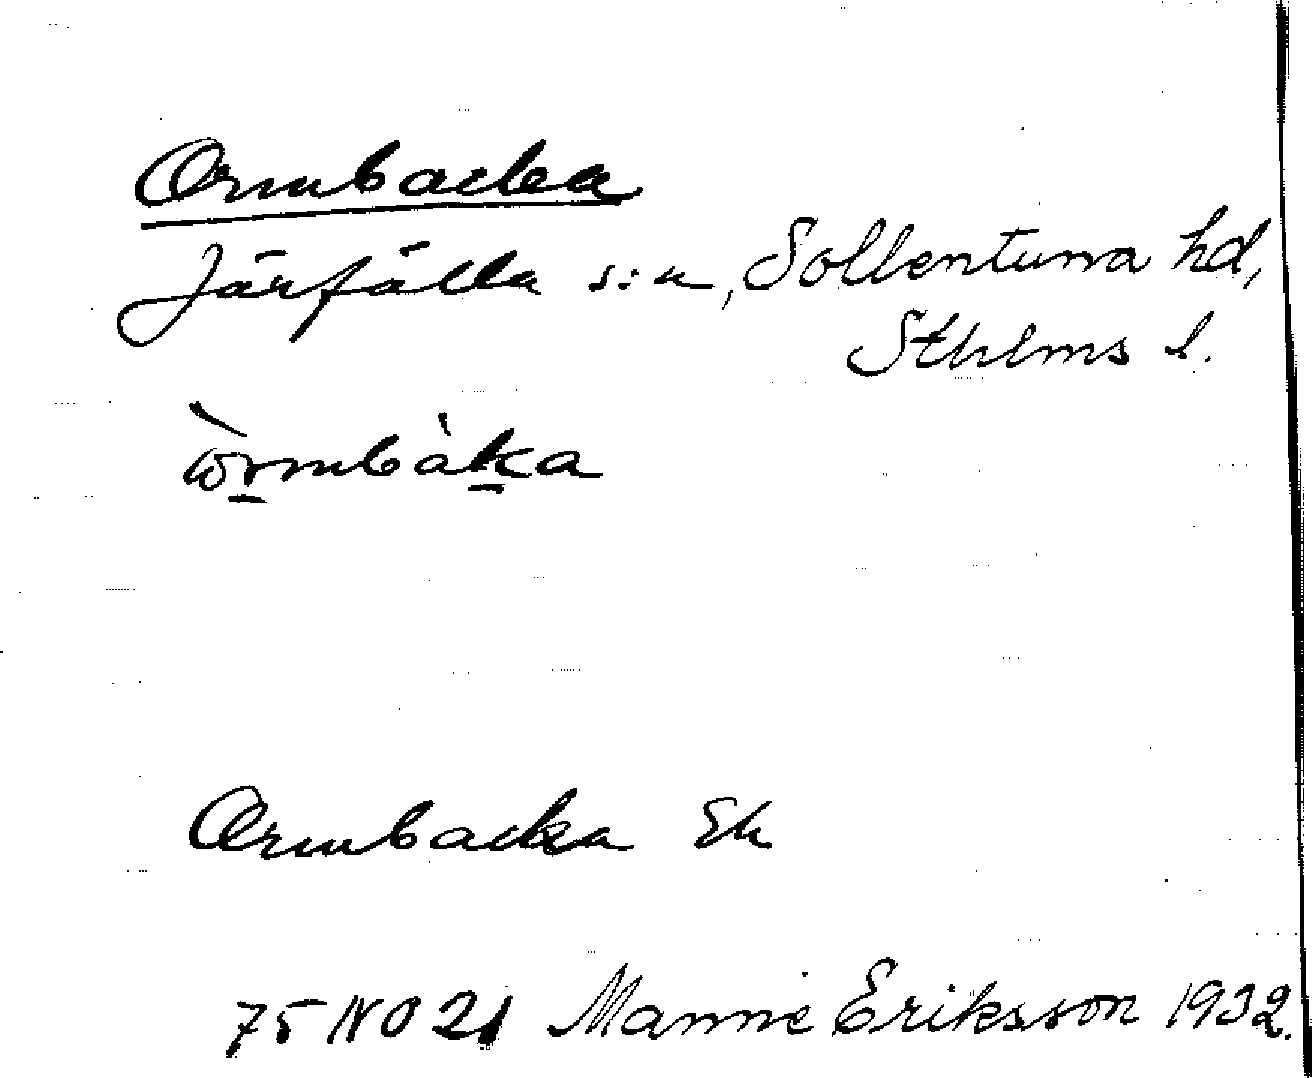 Ormbacka
Järfälla s:n, Sollentuna hd,
Sthlms l.
ẁrmbàka
Ormbacka Ek
75 NO 21 Manne Eriksson 1932.